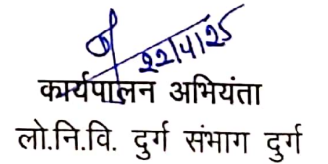 22/4/25
कार्यपालन अभियंता
लो.नि.वि. दुर्ग संभाग दुर्ग